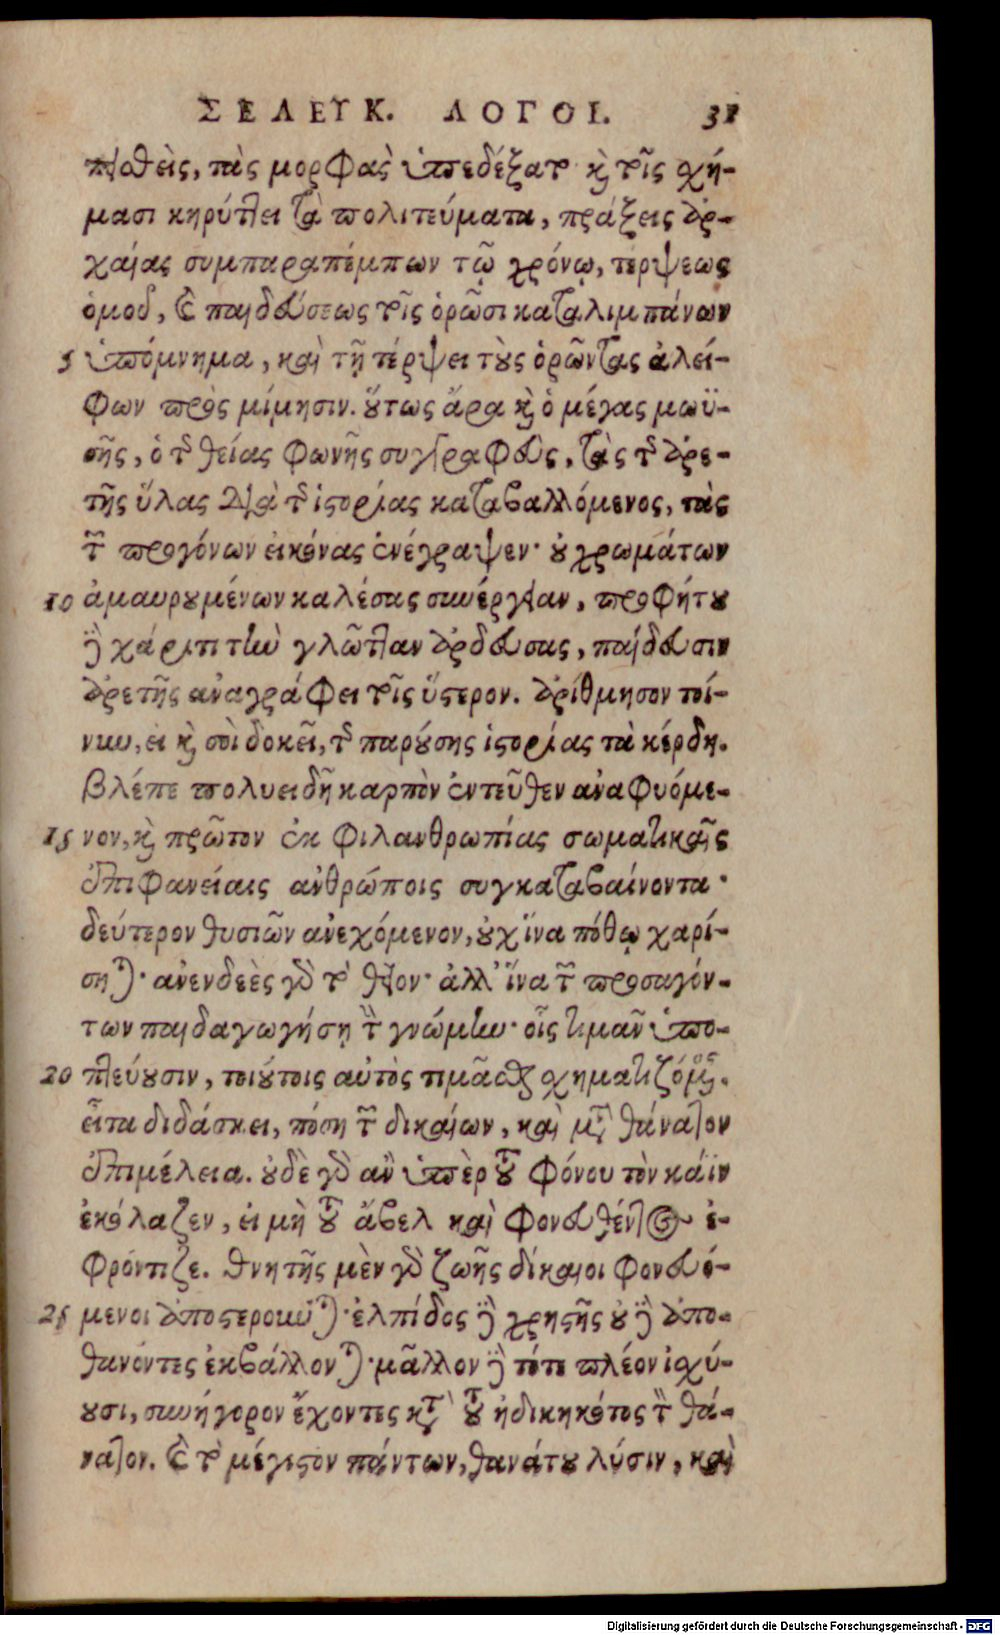 ΣΕΛΕΥΚ. ΛΟΓΟΙ. 31
ποθεὶς, τὰς μορφὰς ὑπεδέξατο καὶ τοῖς χή-
μασι κηρύττει τὰ πολιτεύματα, πράξεις ἀρ-
χαίας συμπαραπέμπων τῷ χρόνῳ, τέρψεως
ὁμοῦ, καὶ παιδεύσεως τοῖς ὁρῶσι καταλιμπάνων
5 ὑπόμνημα, καὶ τῇ τέρψει τοὺς ὁρῶντας ἀλεί-
φων πρὸς μίμησιν. οὕτως ἄρα καὶ ὁ μέγας μωϋ-
σῆς, ὁ τῆς θείας φωνῆς συγγραφεὺς, τὰς τῆς ἀρε-
τῆς ὕλας διὰ τῆς ἱστορίας καταβαλλόμενος, τὰς
τῶν προγόνων εἰκόνας ἐνέγραψεν· οὐ χρωμάτων
10 ἀμαυρουμένων καλέσας συνέργειαν, προφήτου
δὲ χάριτι τὴν γλῶτταν ἀρδεύσας, παίδευσιν
ἀρετῆς ἀναγράφει τοῖς ὕστερον. ἀρίθμησον τοί-
νυν, εἰ καὶ σοὶ δοκεῖ, τῆς παρούσης ἱστορίας τὰ κέρδη.
βλέπε πολυειδῆ καρπὸν ἐντεῦθεν ἀναφυόμε-
15 νον, καὶ πρῶτον ἐκ φιλανθρωπίας σωματικαῖς
ἐπιφανείαις ἀνθρώποις συγκαταβαίνοντα·
δεύτερον θυσιῶν ἀνεχόμενον, οὐχ ἵνα πόθῳ χαρί-
σηται· ἀνενδεὲς γὰρ τὸ θεῖον· ἀλλ' ἵνα τῶν προσαγόν-
των παιδαγωγήσῃ τὴν γνώμην· οἷς τιμᾶν ὑπο-
20 πτεύουσιν, τοιούτοις αὐτὸς τιμᾶσθαι χηματιζόμενος.
εἶτα διδάσκει, πόση τῶν δικαίων, καὶ μετὰ θάνατον
ἐπιμέλεια. οὐδὲ γὰρ ἂν ὑπὲρ τοῦ φόνου τὸν κάϊν
ἐκόλαζεν, εἰ μὴ τοῦ ἄβελ καὶ φονευθέντος ἐ-
φρόντιζε. θνητῆς μὲν γὰρ ζωῆς δίκαιοι φονευό-
25 μενοι ἀποστεροῦνται· ἐλπίδος δὲ χρηστῆς οὐδὲ ἀπο-
θανόντες ἐκβάλλονται· μᾶλλον δὲ τότε πλέον ἰχύ-
ουσι, συνήγορον ἔχοντες κατὰ τοῦ ἠδικηκότος τὸν θά-
νατον. καὶ τὸ μέγιστον πάντων, θανάτου λύσιν, καὶ
Digitalisierung gefördert durch die Deutsche Forschungsgemeinschaft - DFG